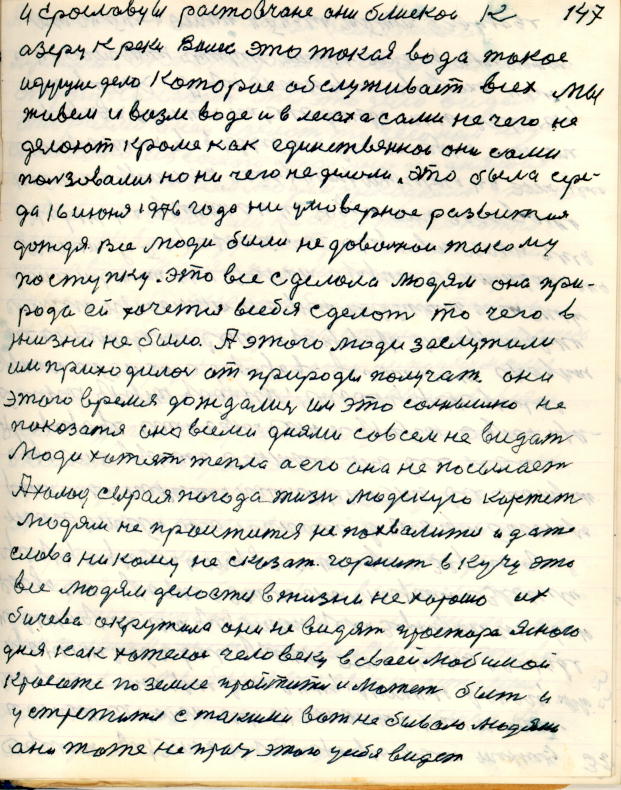 и ерославуй растовчане они блиской К 147
азеру к реки Волге это такая вода такое
идущие дело которые обслуживает всех мы
живем и возле воде и в лесах а сами не чего не
делоют кроме как единственное они сами
ползовалис но ни чего не делали. это была сере-
да 16 июня 1976 года ни умоверное развития
дождя все люди были не довольны такому
поступку. это все сделола людям она при-
рода ей хочется в себя сделат то чего в
жизни не было. А этого люди заслужили
им приходилос от природы получат они
этого время дождалис им это солнышко не
показатя оно всеми днями совсем не видат
Люди хотят тепла а его она не посылает
А холод сырая погода жизн людскую картет
Людям не проститися не похвалитис и даже
слова никому не сказат. горнит в кучу это
все людям делости в жизни не хорошо их
бичева окружила они не видят простора ясного
дня как хотелос человеку в своей любимой
красоте по земле пройтити и может быт и
устретится с такими вот не бывало людями
они тоже не прич этого у себя видет